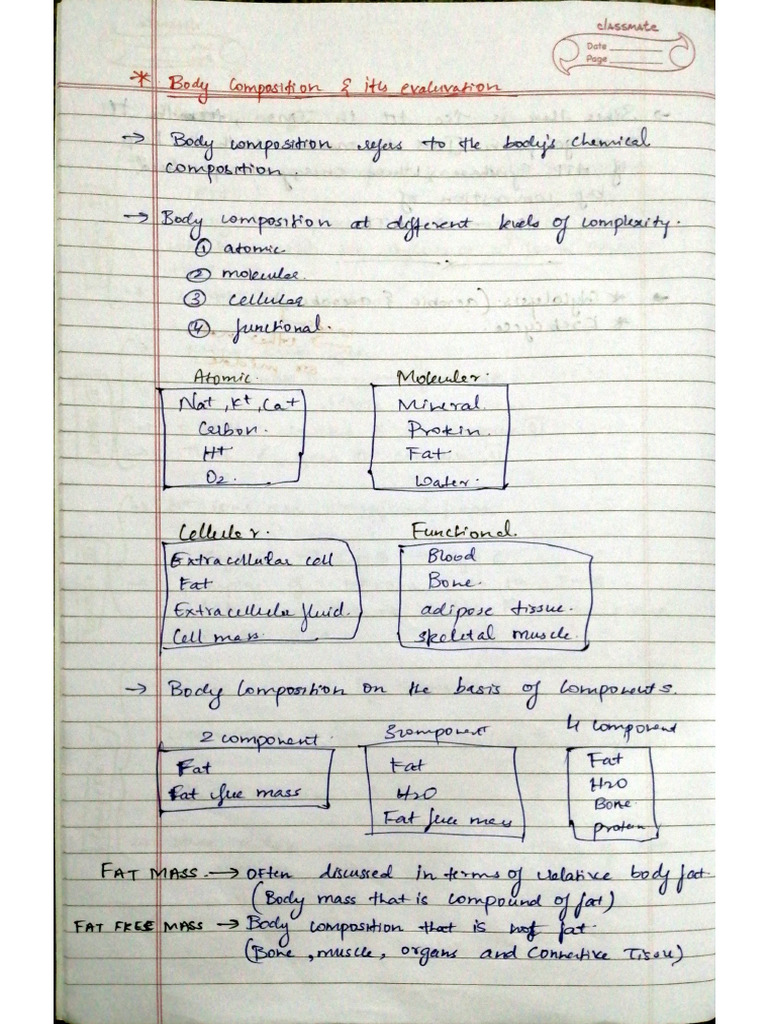 classmate
Date
Page
* Body Composition & it's evaluvation
→ Body composition refers to the body's chemical
composition.
→ Body composition at different levels of complexity.
① atomic
② molecular
③ cellular
④ functional.
Atomic.
Na+, K+, Ca+
Carbon.
H+
O2.
Moleculer.
Mineral.
Protein.
Fat
Water.
Celluler.
Extracellular cell
Fat
Extracellular fluid.
Cell mass.
Functional.
Blood
Bone.
adipose tissue.
skeletal muscle.
→ Body Composition on the basis of Components.
2 component.
Fat
Fat free mass
3component
Fat
H2O
Fat free mass
4 component
Fat
H2O
Bone
protein
FAT MASS. → Often discussed in terms of relative body fat.
(Body mass that is compound of fat)
FAT FREE MASS → Body composition that is not fat.
(Bone, muscle, organs and Connective Tissue)